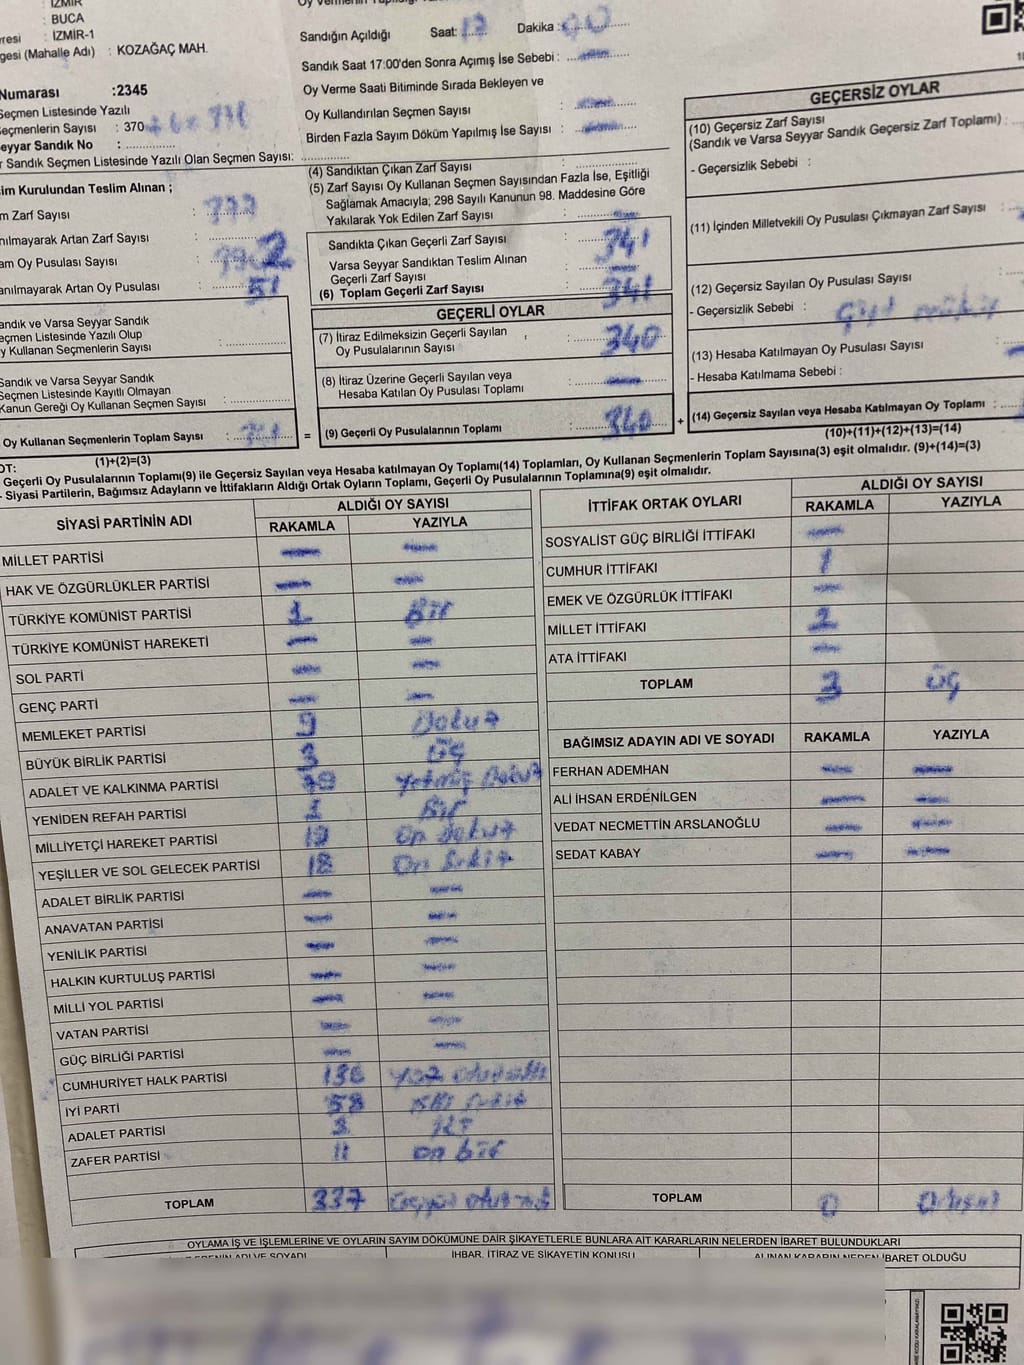 İZMİR
: BUCA
: İZMİR-1
gesi (Mahalle Adı) : KOZAĞAÇ MAH.
Numarası :2345
Seçmen Listesinde Yazılı
eçmenlerin Sayısı : 370 + 6 =
eyyar Sandık No :
r Sandık Seçmen Listesinde Yazılı Olan Seçmen Sayısı:
im Kurulundan Teslim Alınan ;
m Zarf Sayısı :
nılmayarak Artan Zarf Sayısı : 2
am Oy Pusulası Sayısı :
anılmayarak Artan Oy Pusulası : 51
andık ve Varsa Seyyar Sandık
eçmen Listesinde Yazılı Olup
y Kullanan Seçmenlerin Sayısı :
Sandık ve Varsa Seyyar Sandık
Seçmen Listesinde Kayıtlı Olmayan
Kanun Gereği Oy Kullanan Seçmen Sayısı :
Oy Kullanan Seçmenlerin Toplam Sayısı : 341 =
(1)+(2)=(3)
Sandığın Açıldığı Saat: 17 Dakika : 00
Sandık Saat 17:00'den Sonra Açımış İse Sebebi : —
Oy Verme Saati Bitiminde Sırada Bekleyen ve
Oy Kullandırılan Seçmen Sayısı : —
Birden Fazla Sayım Döküm Yapılmış İse Sayısı : —
(4) Sandıktan Çıkan Zarf Sayısı :
(5) Zarf Sayısı Oy Kullanan Seçmen Sayısından Fazla İse, Eşitliği
Sağlamak Amacıyla; 298 Sayılı Kanunun 98. Maddesine Göre
Yakılarak Yok Edilen Zarf Sayısı : —
Sandıkta Çıkan Geçerli Zarf Sayısı : 341
Varsa Seyyar Sandıktan Teslim Alınan
Geçerli Zarf Sayısı : —
(6) Toplam Geçerli Zarf Sayısı : 341
GEÇERLİ OYLAR
(7) İtiraz Edilmeksizin Geçerli Sayılan
Oy Pusulalarının Sayısı : 340
(8) İtiraz Üzerine Geçerli Sayılan veya
Hesaba Katılan Oy Pusulası Toplamı : —
(9) Geçerli Oy Pusulalarının Toplamı : 340 +
GEÇERSİZ OYLAR
(10) Geçersiz Zarf Sayısı
(Sandık ve Varsa Seyyar Sandık Geçersiz Zarf Toplamı) :
- Geçersizlik Sebebi :
(11) İçinden Milletvekili Oy Pusulası Çıkmayan Zarf Sayısı :
(12) Geçersiz Sayılan Oy Pusulası Sayısı :
- Geçersizlik Sebebi :
(13) Hesaba Katılmayan Oy Pusulası Sayısı :
- Hesaba Katılmama Sebebi :
(14) Geçersiz Sayılan veya Hesaba Katılmayan Oy Toplamı :
(10)+(11)+(12)+(13)=(14)
OT:
Geçerli Oy Pusulalarının Toplamı(9) ile Geçersiz Sayılan veya Hesaba katılmayan Oy Toplamı(14) Toplamları, Oy Kullanan Seçmenlerin Toplam Sayısına(3) eşit olmalıdır. (9)+(14)=(3)
- Siyasi Partilerin, Bağımsız Adayların ve İttifakların Aldığı Ortak Oyların Toplamı, Geçerli Oy Pusulalarının Toplamına(9) eşit olmalıdır.
SİYASİ PARTİNİN ADI ALDIĞI OY SAYISI
RAKAMLA YAZIYLA
MİLLET PARTİSİ — —
HAK VE ÖZGÜRLÜKLER PARTİSİ — —
TÜRKİYE KOMÜNİST PARTİSİ 1 Bir
TÜRKİYE KOMÜNİST HAREKETİ — —
SOL PARTİ — —
GENÇ PARTİ — —
MEMLEKET PARTİSİ 9 Dokuz
BÜYÜK BİRLİK PARTİSİ 3 Üç
ADALET VE KALKINMA PARTİSİ 79 Yetmiş Dokuz
YENİDEN REFAH PARTİSİ 1 Bir
MİLLİYETÇİ HAREKET PARTİSİ 19 On dokuz
YEŞİLLER VE SOL GELECEK PARTİSİ 18 On Sekiz
ADALET BİRLİK PARTİSİ — —
ANAVATAN PARTİSİ — —
YENİLİK PARTİSİ — —
HALKIN KURTULUŞ PARTİSİ — —
MİLLİ YOL PARTİSİ — —
VATAN PARTİSİ — —
GÜÇ BİRLİĞİ PARTİSİ — —
CUMHURİYET HALK PARTİSİ 136 Yüz otuzaltı
İYİ PARTİ 58
ADALET PARTİSİ
ZAFER PARTİSİ 11 on bir
TOPLAM 337
İTTİFAK ORTAK OYLARI ALDIĞI OY SAYISI
RAKAMLA YAZIYLA
SOSYALİST GÜÇ BİRLİĞİ İTTİFAKI —
CUMHUR İTTİFAKI 1
EMEK VE ÖZGÜRLÜK İTTİFAKI —
MİLLET İTTİFAKI 2
ATA İTTİFAKI —
TOPLAM 3 Üç
BAĞIMSIZ ADAYIN ADI VE SOYADI RAKAMLA YAZIYLA
FERHAN ADEMHAN — —
ALİ İHSAN ERDENİLGEN — —
VEDAT NECMETTİN ARSLANOĞLU — —
SEDAT KABAY — —
TOPLAM 0
OYLAMA İŞ VE İŞLEMLERİNE VE OYLARIN SAYIM DÖKÜMÜNE DAİR ŞİKAYETLERLE BUNLARA AİT KARARLARIN NELERDEN İBARET BULUNDUKLARI
EDENİN ADI VE SOYADI İHBAR, İTİRAZ VE ŞİKAYETİN KONUSU ALINAN KARARIN NEDEN İBARET OLDUĞU